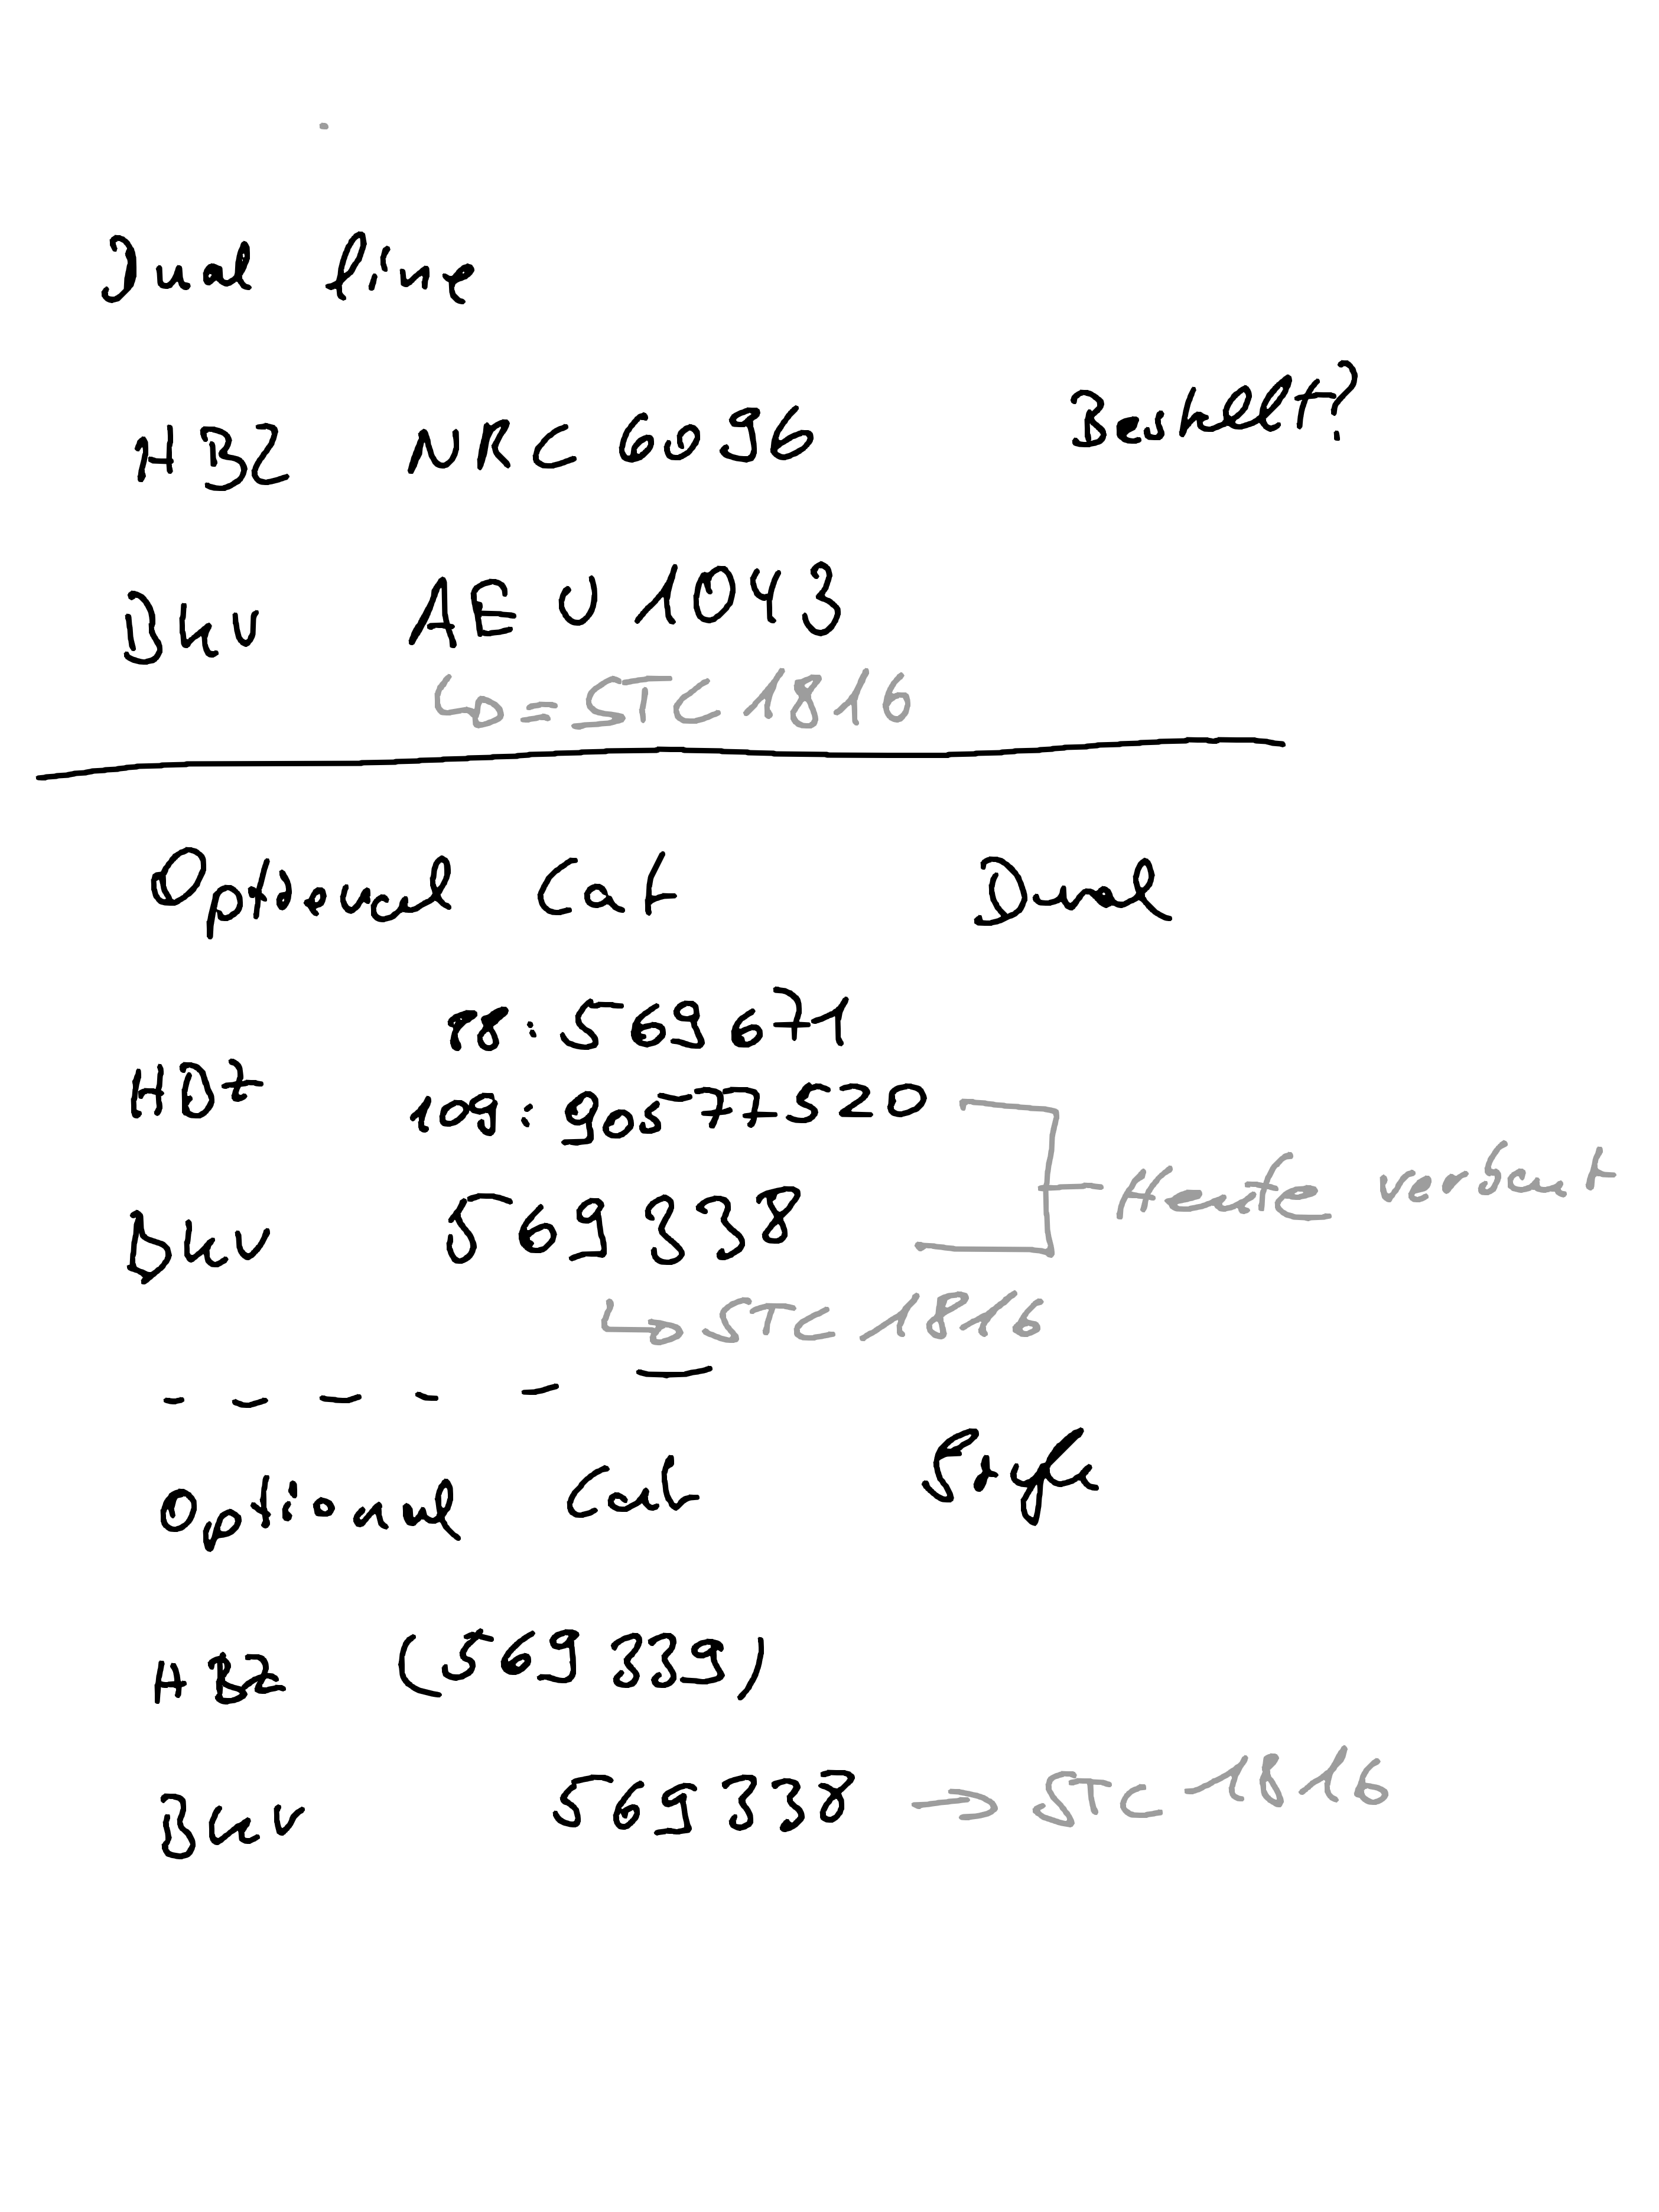 Dual line
HBZ NRC 6096 Bestellt?
Bkv AEU 1043
↳ = STC 1816
Optional Cat Dual
88: 569671
HBZ
109: 90577520
Bkv 569338
↳ STC 1816
Optional Cat Style
HBZ (569339)
Bkv 569338 => STC 1816